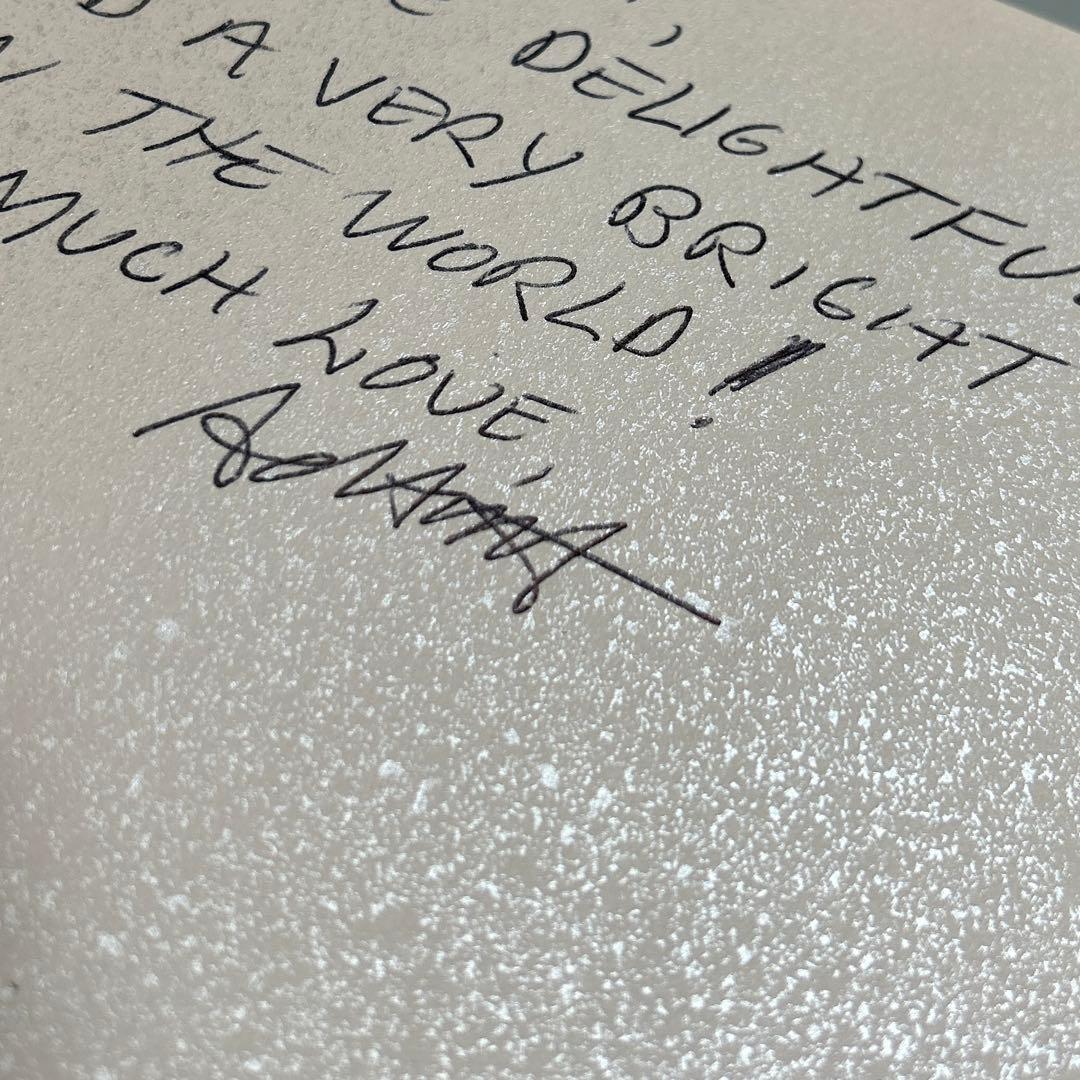 DELIGHTFU
D A VERY BRIGHT
THE WORLD!
MUCH LOVE,